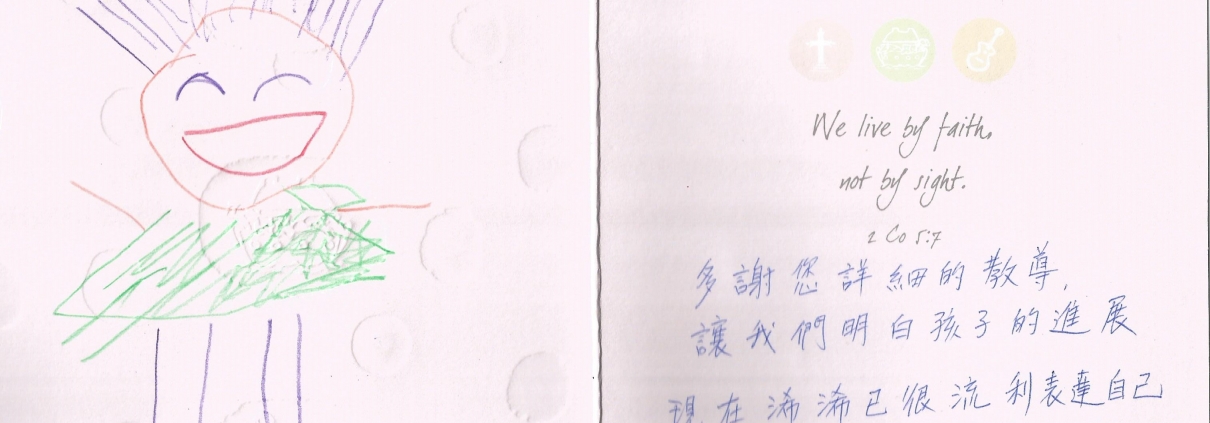 We live by faith,
not by sight.
2 Co 5:7
多謝您詳細的教導,
讓我們明白孩子的進展
現在浠浠已很流利表達自己